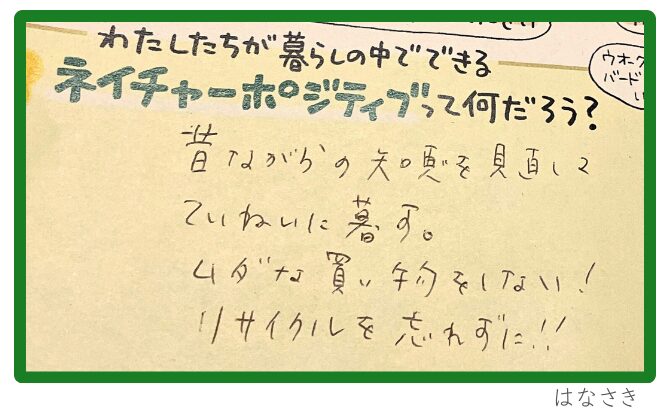 わたしたちが暮らしの中でできる
ネイチャーポジティブって何だろう?
昔ながらの知恵を見直して
ていねいに暮す。
ムダな買い物をしない!
リサイクルを忘れずに!!
ウオーク
バード
い
はなさき